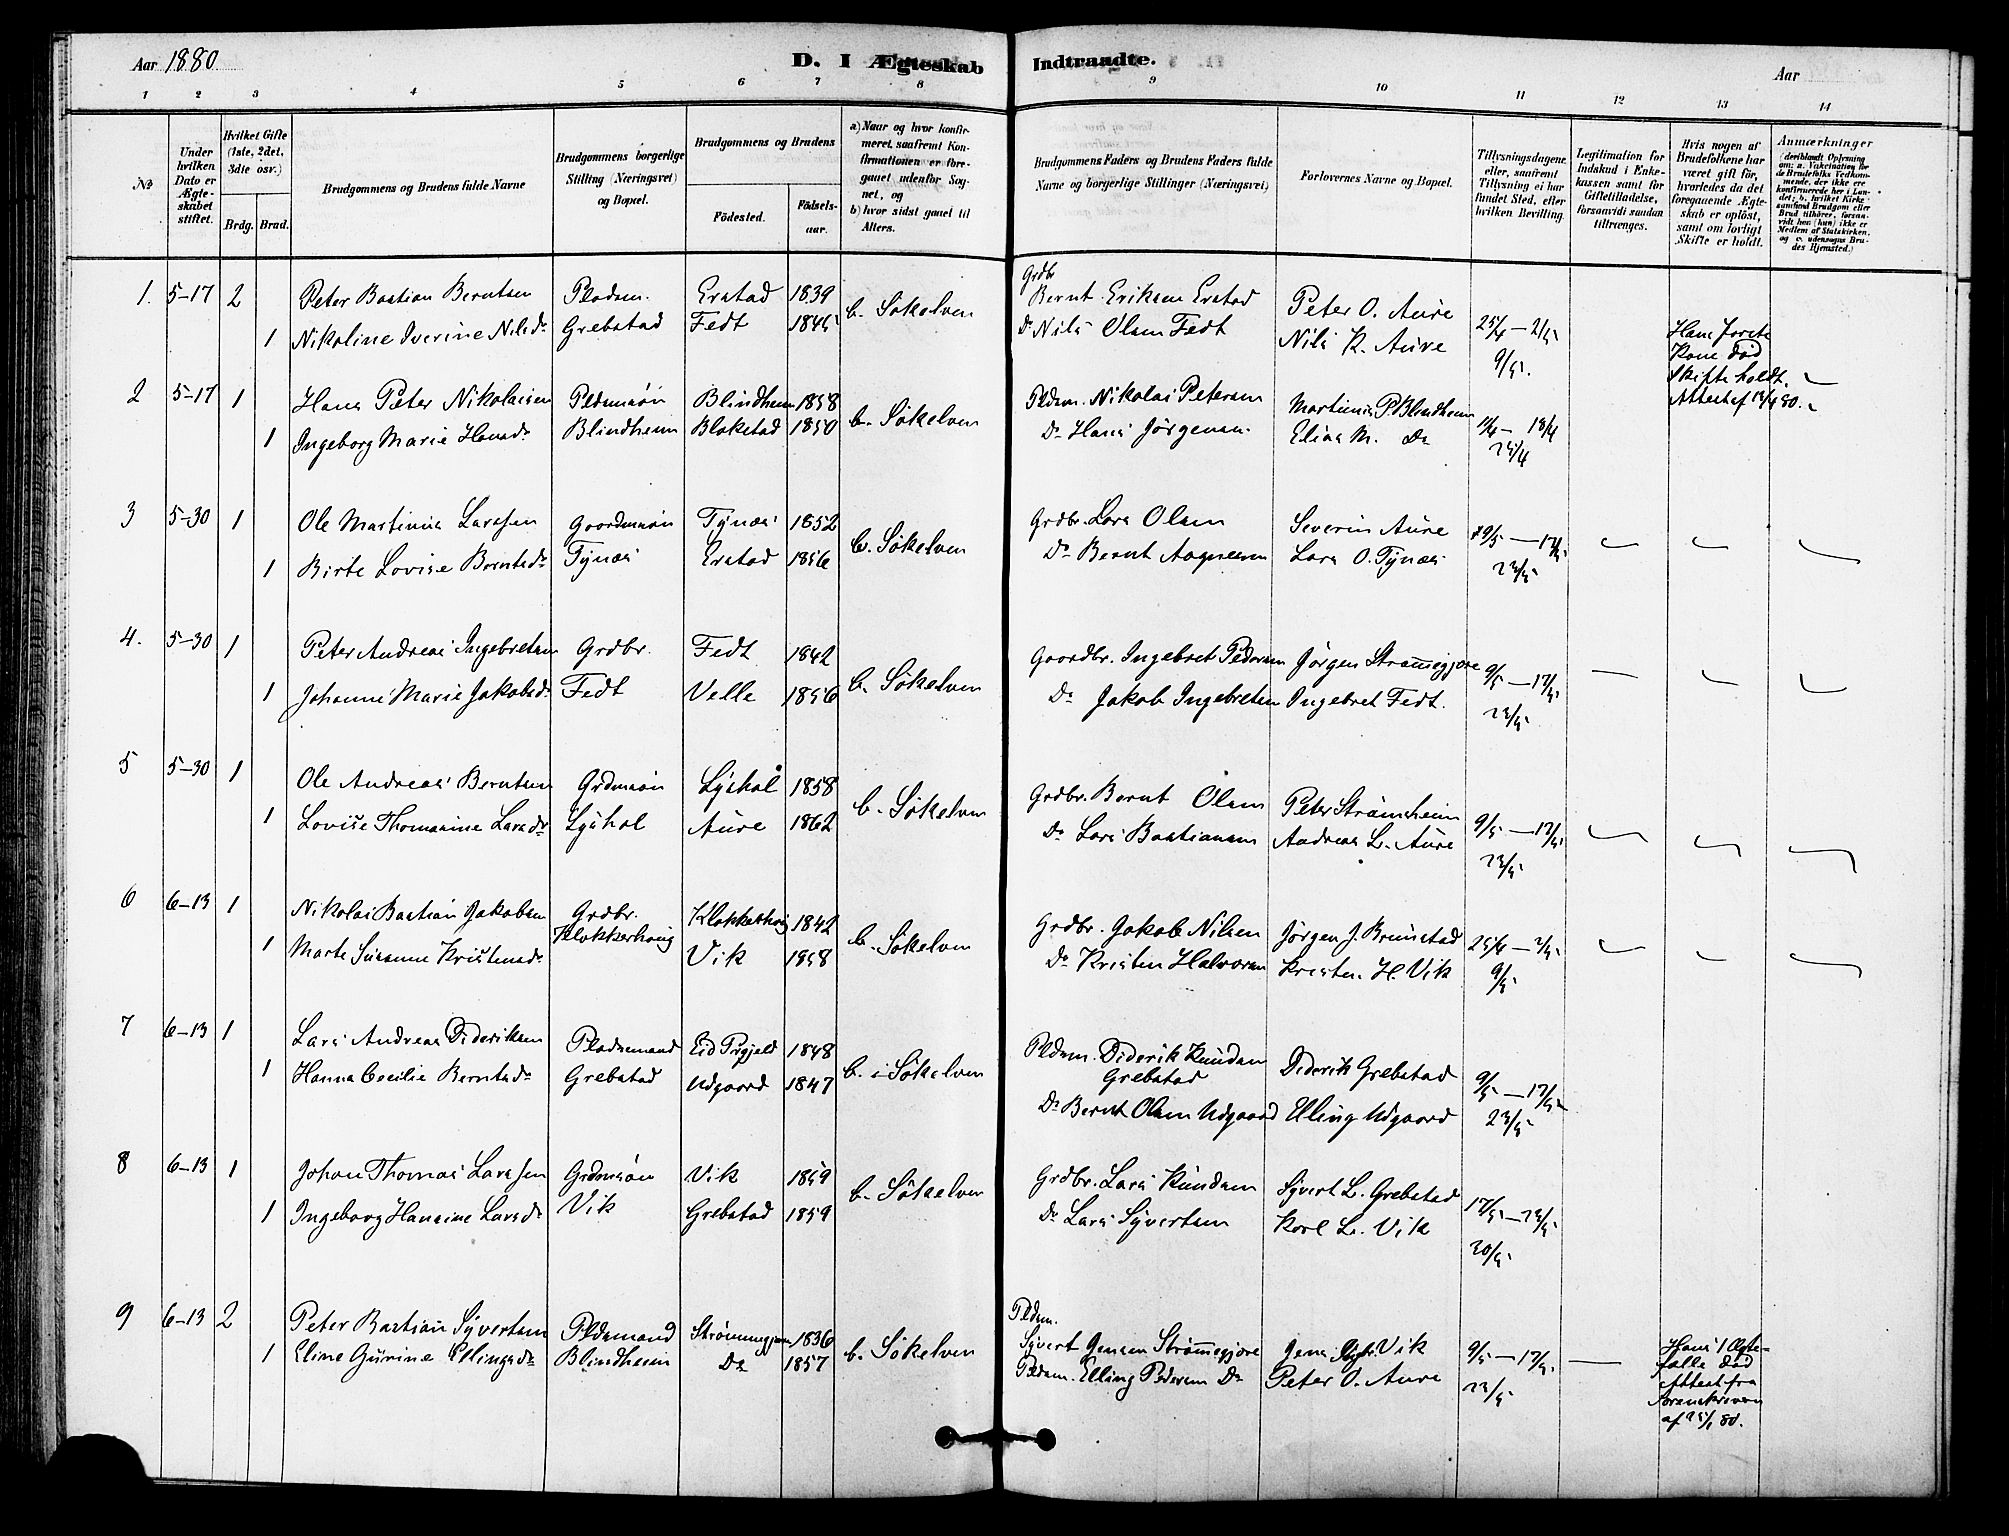 Aar 1880
D. I Ægteskab Indtraadte.
Aar
1 2 3 4 5 6 7 8 9 10 11 12 13 14
No
Under hvilken Dato er Ægteskabet stiftet.
Hvilket Gifte (1ste, 2det, 3die osv.)
Brdg. Brud.
Brudgommens og Brudens fulde Navne
Brudgommens borgerlige Stilling (Næringsvei) og Bopæl.
Brudgommens og Brudens
Fødested.
Fødselsaar.
a) Naar og hvor konfirmeret, saafremt Konfirmationen er foregaaet udenfor Sognet, og
b) hvor sidst gaaet til Alters.
Brudgommens Faders og Brudens Faders fulde Navne og borgerlige Stillinger (Næringsvei)
Forlovernes Navne og Bopæl.
Tillysningsdagene, eller, saafremt Tillysning ei har fundet Sted, efter hvilken Bevilling.
Legitimation for Indskud i Enkekassen samt for Giftetilladelse, forsaavidt saadan tiltrænges.
Hvis nogen af Brudefolkene har været gift før, hvorledes da det foregaaende Ægteskab er opløst, samt om lovligt Skifte er holdt.
Anmærkninger
(deriblandt Oplysning om: a. Vakcination for de Brudefolks Vedkommende, der ikke ere konfirmerede her i Landet; b. hvilket Kirkesamfund Brudgom eller Brud tilhører, forsaavidt han (hun) ikke er Medlem af Statskirken, og c. udensogns Brudes Hjemsted.)
1. 5-17 2 Peter Bastian Berntsen Pladsm. Erstad 1839 b. Søkelven Grdbr Bernt Eriksen Erstad Peter O. Aure 25/4 - 2/5
1 Nikoline Iverine Nilsdr Grebstad Fedt 1845 Do Nils Olsen Fedt Nils K. Aure 9/5. Hans første Kone død Skifte holdt.
2 5-17 1 Hans Peter Nikolaisen Pldsmsøn Blindheim 1858 b. Søkelven Pldsm. Nikolai Petersen Martinus P. Blindheim 11/4 - 18/4
1 Ingeborg Marie Hansdr Blindheim Blakstad 1850 Do Hans Jørgensen Elias M. Do 25/4
3 5-30 1 Ole Martinus Larssen Gaardmsøn Tynæs 1852 b. Søkelven Grdbr. Lars Olsen Severin Aure 9/5 - 17/5
1 Birte Lovise Berntsdr Tynæs Erstad 1856 Do Bernt Aagesen Lars O. Tynæs 23/5
4. 5-30 1 Peter Andreas Ingebretsen Grdbr. Fedt 1842 b. Søkelven Gaardbr. Ingebret Pedersen Jørgen Strømegjøre 9/5 - 17/5
1 Johanne Marie Jakobsdr Fedt Velle 1856 Do Jakob Ingebretsen Ingebret Fedt. 23/5
5 5-30 1 Ole Andreas Berntsen Grdmsøn Lyshol 1858 b. Søkelven Grdbr. Bernt Olsen Peter Strømheim 9/5 - 17/5
1 Lovise Thomasine Larsdr Lyshol Aure 1862 Do Lars Bastiansen Andreas L. Aure 23/5
6 6-13 1 Nikolai Bastian Jakobsen Grdbr. Klokkerhoug 1842 b. Søkelven Grdbr. Jakob Nilsen Jørgen J. Brunstad 25/4 - 2/5
1 Marte Susanne Kristensdr Klokkerhoug Vik 1858 Do Kristen Halvorsen Kristen H. Vik 9/5
7 6-13 1 Lars Andreas Dideriksen Pladsmand Eid Prgjeld 1848 b. i Søkelven Pldsm. Diderik Knudsen Grebstad Diderik Grebstad 9/5 - 17/5
1 Hanna Cecilie Berntsdr Grebstad Udgaard 1847 Do Bernt Olsen Udgaard Elling Udgaard 23/5
8 6-13 1 Johan Thomas Larssen Grdmsøn Vik 1859 b. Søkelven Grdbr. Lars Knudsen Syvert L. Grebstad 17/5 - 23/5
1 Ingeborg Hansine Larsdr Vik Grebstad 1859 Do Lars Syvertsen Karl L. Vik 30/5
9 6-13 2 Peter Bastian Syvertsen Pldsmand Strømmegjøre 1836 b. Søkelven Pldsm. Syvert Jensen Strømmegjøre Jens Vik 9/5 - 17/5
1 Eline Gurine Ellingsdr Blindheim Do 1857 Pldsm. Elling Pedersen Do Peter O. Aure 23/5 Hans 1 Ægtefælle død Attest fra Sorenskriveren